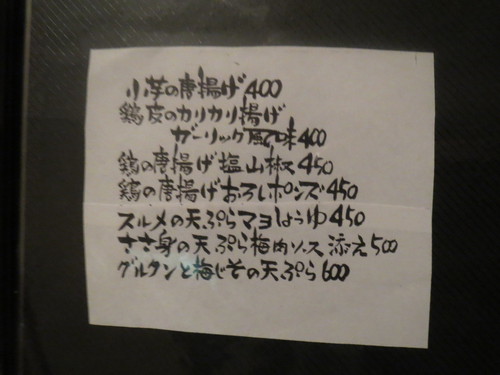 小芋の唐揚げ400
鶏皮のカリカリ揚げ
ガーリック風味400
鶏の唐揚げ塩山椒450
鶏の唐揚げおろしポンズ450
スルメの天ぷらマヨしょうゆ450
ささ身の天ぷら梅肉ソース添え500
グルタンと梅じその天ぷら600